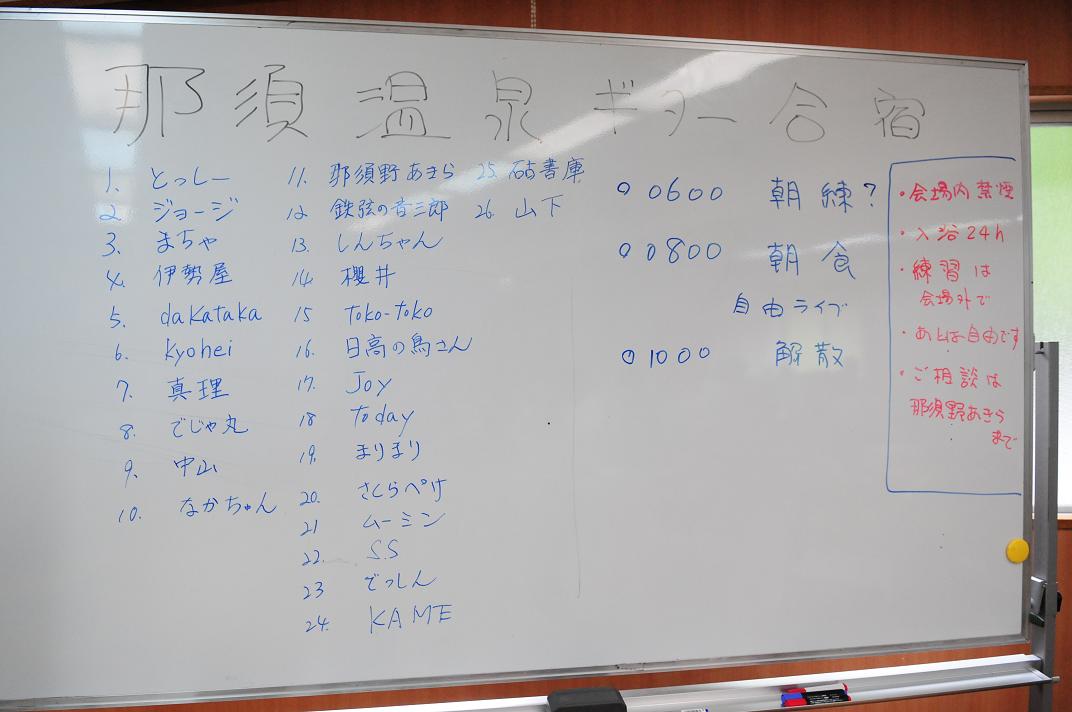 那須温泉ギター合宿
1. とっしー
2. ジョージ
3. まちゃ
4. 伊勢屋
5. dakataka
6. kyohei
7. 真理
8. でじゃ丸
9. 中山
10. なかちゃん
11. 那須野あきら
12 鉄弦の音三郎
13. しんちゃん
14. 櫻井
15 toko-toko
16. 日高の鳥さん
17. Joy
18 today
19. まりまり
20. さくらぺけ
21 ムーミン
22. S.S
23 でっしん
24. KAME
25. 書庫
26. 山下
○ 0600 朝練?
○ 0800 朝食
自由ライブ
○ 1000 解散
・会場内禁煙
・入浴24h
・練習は
会場外で
・あとは自由です
・ご相談は
那須野あきら
まで